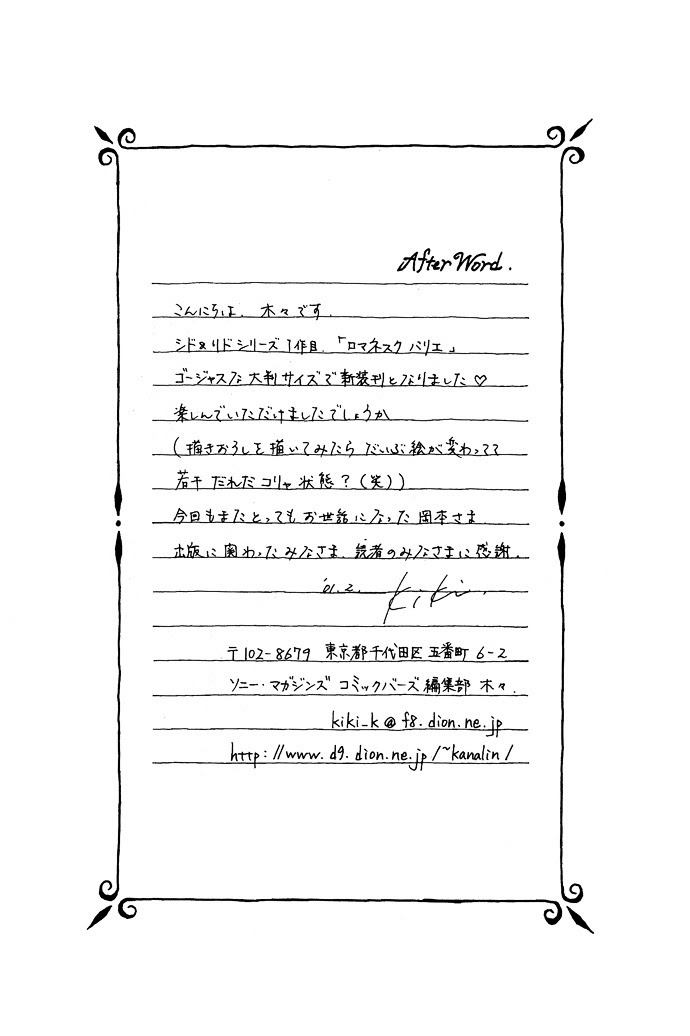 After Word.
こんにちは、木々です。
シド&リドシリーズ1作目、「ロマネスク バリエ」
ゴージャスな大判サイズで新装刊となりました♡
楽しんでいただけましたでしょうか
(描きおろしを描いてみたら だいぶ絵が変わってて
若干 だれだコリャ状態?(笑))
今回もまたとってもお世話になった岡本さま
出版に関わったみなさま、読者のみなさまに感謝。
'01.2. Kiki.
〒102-8679 東京都千代田区五番町6-2
ソニー・マガジンズ コミックバーズ編集部 木々.
kiki_k@f8.dion.ne.jp
http://www.d9.dion.ne.jp/~kanalin/